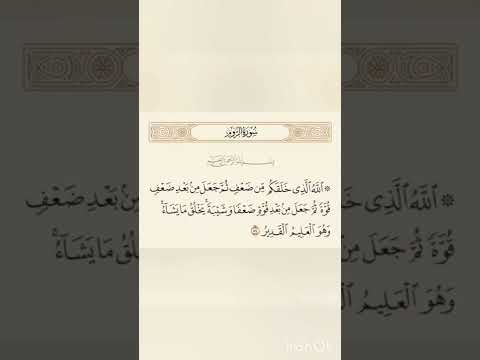 سُورَةُ الرُّومِ
بِسْمِ ٱللَّهِ ٱلرَّحْمَٰنِ ٱلرَّحِيمِ
۞ ٱللَّهُ ٱلَّذِى خَلَقَكُم مِّن ضَعْفٍ ثُمَّ جَعَلَ مِنۢ بَعْدِ ضَعْفٍ
قُوَّةً ثُمَّ جَعَلَ مِنۢ بَعْدِ قُوَّةٍ ضَعْفًا وَشَيْبَةً ۚ يَخْلُقُ مَا يَشَآءُ ۖ
وَهُوَ ٱلْعَلِيمُ ٱلْقَدِيرُ